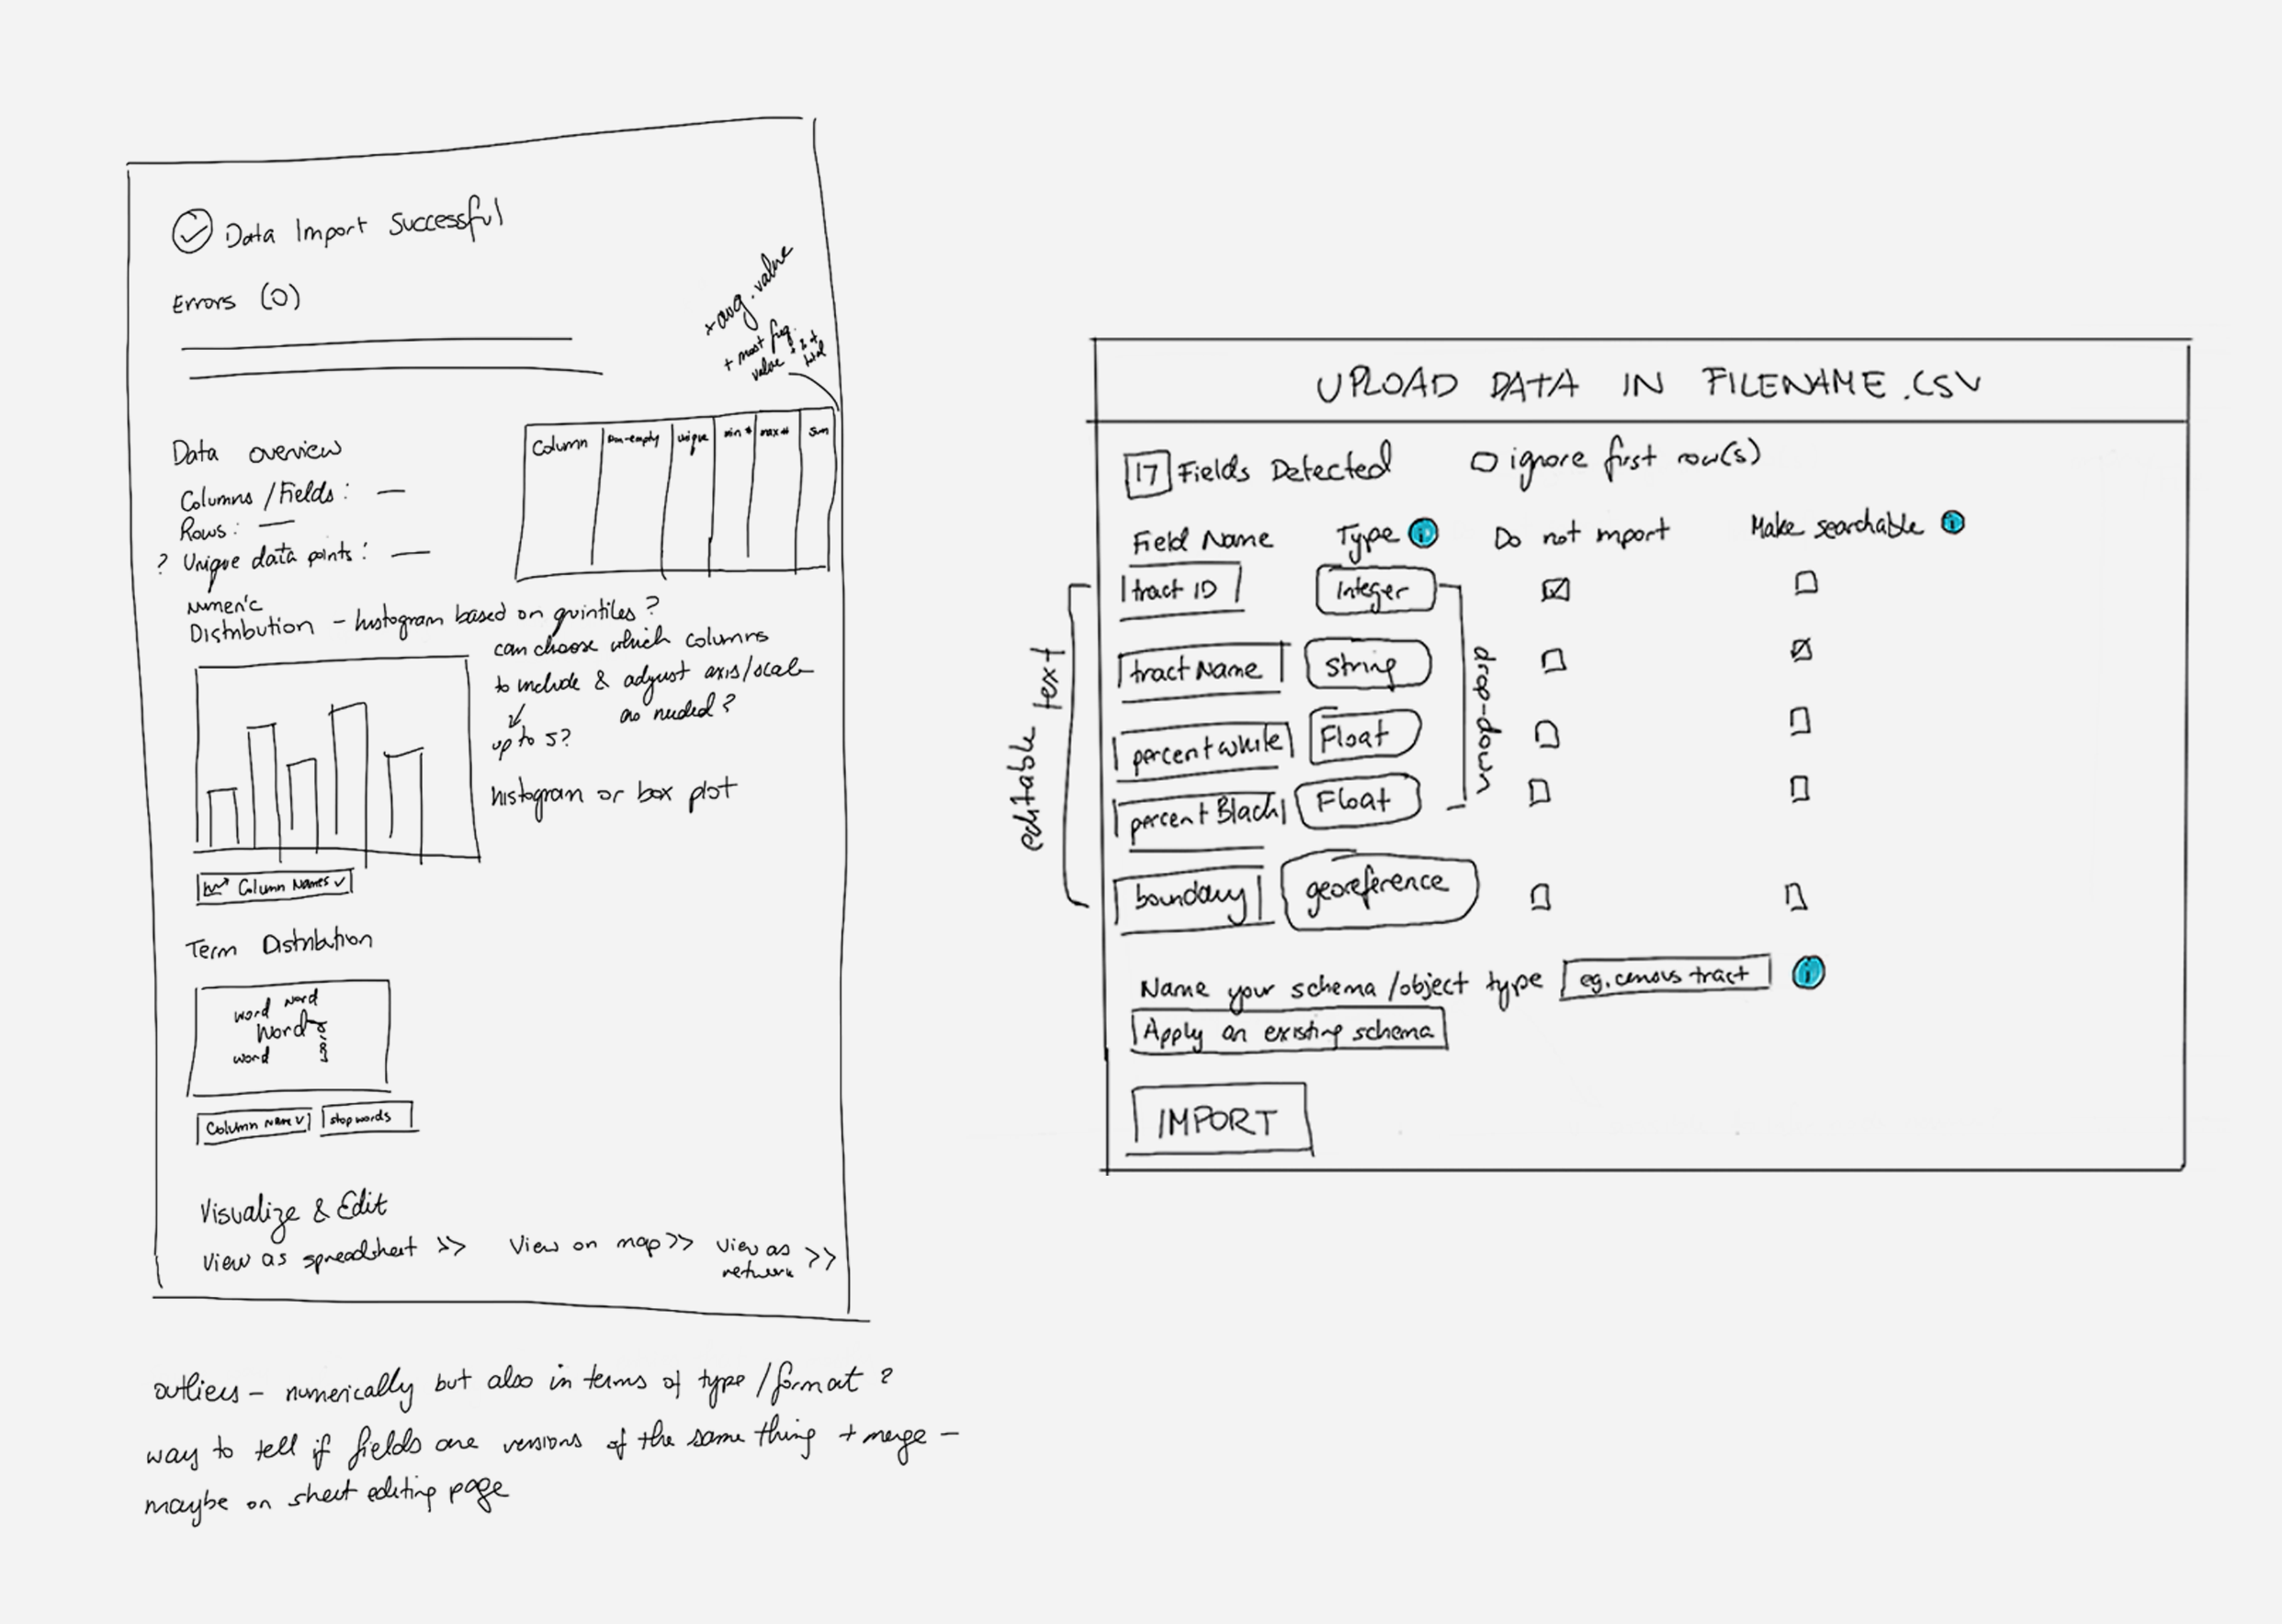 Data Import Successful
Errors (0)
+ avg. value
+ most freq. value + % of total
Data overview
Columns/Fields: —
Rows: —
? Unique data points: —
Column non-empty unique min # max # sum
Numeric
Distribution – histogram based on quintiles?
can choose which columns
to include & adjust axis/scale
as needed?
up to 5?
histogram or box plot
Column Names
Term Distribution
word word
Word word
word
Column Name stop words
Visualize & Edit
View as spreadsheet >> View on map >> View as network >>
outliers – numerically but also in terms of type/format?
way to tell if fields are versions of the same thing + merge –
maybe on sheet editing page
UPLOAD DATA IN FILENAME.CSV
17 Fields Detected ignore first row(s)
Field Name Type i Do not import Make searchable i
tract ID Integer
tract Name String
percent white Float
percent Black Float
boundary georeference
editable text
drop-down
Name your schema/object type eg. census tract i
Apply an existing schema
IMPORT